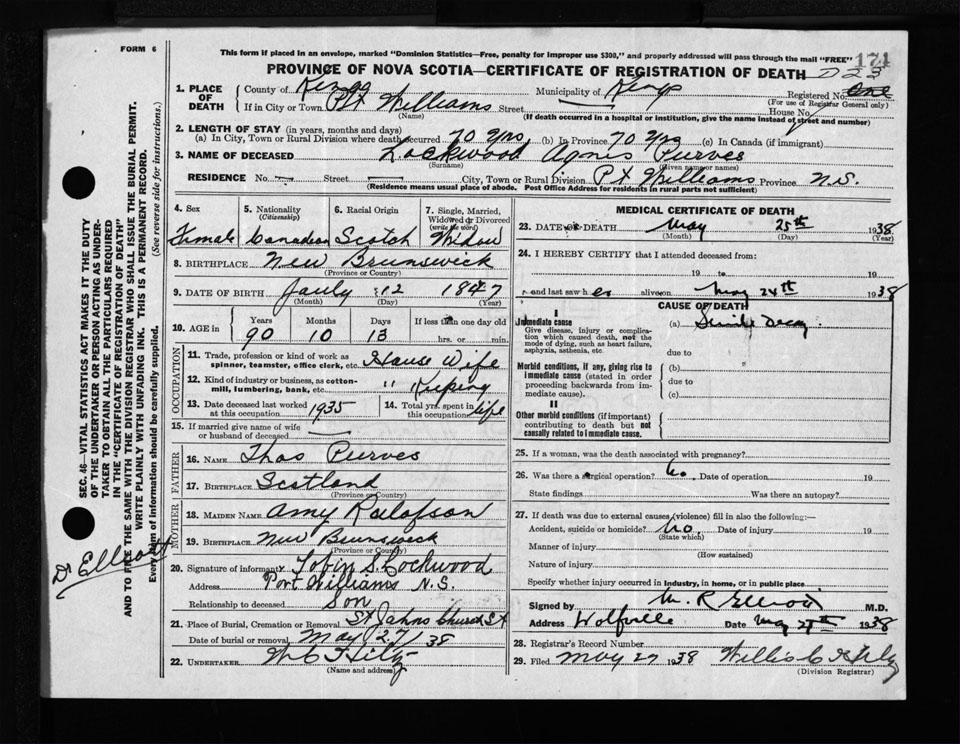 FORM 6
This form if placed in an envelope, marked "Dominion Statistics—Free, penalty for improper use $300," and properly addressed will pass through the mail "FREE"
171
PROVINCE OF NOVA SCOTIA—CERTIFICATE OF REGISTRATION OF DEATH D23
1. PLACE OF DEATH
County of Kings Municipality of Kings Registered No. one
(For use of Registrar General only)
If in City or Town Pt Williams Street House No.
(Name) (If death occurred in a hospital or institution, give the name instead of street and number)
2. LENGTH OF STAY (in years, months and days)
(a) In City, Town or Rural Division where death occurred 70 yrs (b) In Province 70 yrs (c) In Canada (if immigrant)
3. NAME OF DECEASED Lockwood Agnes Purves
(Surname) (Given name or names)
RESIDENCE No. — Street — City, Town or Rural Division Pt Williams Province N.S.
(Residence means usual place of abode. Post Office Address for residents in rural parts not sufficient)
4. Sex 5. Nationality (Citizenship) 6. Racial Origin 7. Single, Married, Widowed or Divorced (write the word)
Female Canadian Scotch Widow
8. BIRTHPLACE New Brunswick
(Province or Country)
9. DATE OF BIRTH Jauly 12 1847
(Month) (Day) (Year)
10. AGE in Years Months Days If less than one day old
90 10 13 hrs. or min.
OCCUPATION
11. Trade, profession or kind of work as spinner, teamster, office clerk, etc. House Wife
12. Kind of industry or business, as cotton-mill, lumbering, bank, etc. " Keeping
13. Date deceased last worked at this occupation 1935 14. Total yrs. spent in this occupation life
15. If married give name of wife or husband of deceased —
FATHER
16. NAME Thos Purves
17. BIRTHPLACE Scotland
(Province or Country)
MOTHER
18. MAIDEN NAME Amy Railofson
19. BIRTHPLACE New Brunswick
(Province or Country)
20. Signature of informant Tobin S. Lockwood
Address Port Williams N.S.
Relationship to deceased Son
21. Place of Burial, Cremation or Removal St Johns Church St
Date of burial or removal May 27/38
22. UNDERTAKER
(Name and address)
MEDICAL CERTIFICATE OF DEATH
23. DATE OF DEATH May 25th 1938
(Month) (Day) (Year)
24. I HEREBY CERTIFY that I attended deceased from:
19 to 19
and last saw her alive on May 24th 1938
CAUSE OF DEATH
I
Immediate cause (a) Senile Decay
Give disease, injury or complication which caused death, not the mode of dying, such as heart failure, asphyxia, asthenia, etc.
due to
Morbid conditions, if any, giving rise to immediate cause (stated in order proceeding backwards from immediate cause).
(b)
due to
(c)
II
Other morbid conditions (if important) contributing to death but not causally related to immediate cause.
25. If a woman, was the death associated with pregnancy?
26. Was there a surgical operation? No. Date of operation 19
State findings Was there an autopsy?
27. If death was due to external causes (violence) fill in also the following:—
Accident, suicide or homicide? No. Date of injury 19
(State which)
Manner of injury
(How sustained)
Nature of injury
Specify whether injury occurred in industry, in home, or in public place
Signed by M. R Elliott M.D.
Address Wolfville Date May 27th 1938
28. Registrar's Record Number
29. Filed May 27 1938
(Division Registrar)
SEC. 46—VITAL STATISTICS ACT MAKES IT THE DUTY
OF THE UNDERTAKER OR PERSON ACTING AS UNDER-
TAKER TO OBTAIN ALL THE PARTICULARS REQUIRED
IN THE "CERTIFICATE OF REGISTRATION OF DEATH"
AND TO FILE THE SAME WITH THE DIVISION REGISTRAR WHO SHALL ISSUE THE BURIAL PERMIT.
WRITE PLAINLY WITH UNFADING INK. THIS IS A PERMANENT RECORD.
Every item of information should be carefully supplied. (See reverse side for instructions.)
Dr Elliott